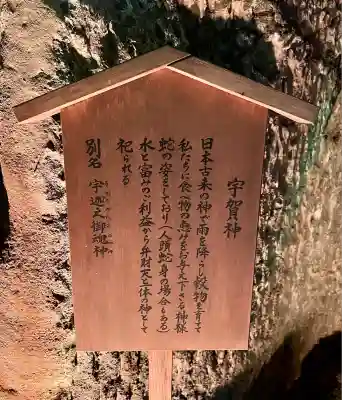 宇賀神
日本古来の神で雨を降らし穀物を育て
私たちに食べ物の恵みをお与え下さる神様
蛇の姿をしており(人頭蛇身の場合もある)
水と富みのご利益から弁財天と一体の神として
祀られる
別名 宇迦之御魂神